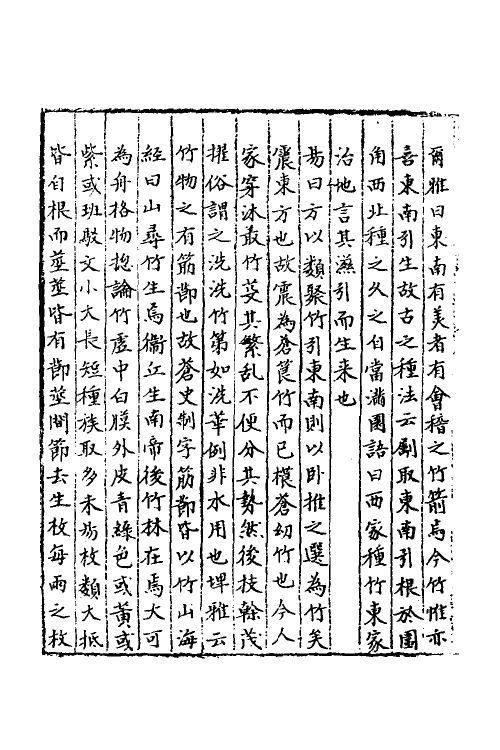 爾雅曰東南有美者有會稽之竹箭焉今竹惟亦
喜東南引生故古之種法云劚取東南引根於園
角西北種之久之自當滿園語曰西家種竹東家
治地言其滋引而生來也
易曰方以類聚竹引東南則以卧推之選為竹矣
震東方也故震為蒼筤竹而已樸蒼幼竹也今人
家穿沐叢竹芟其繁乱不使分其勢然後枝榦茂
擢俗謂之洗洗竹第如洗華例非水用也埤雅云
竹物之有筋節也故蒼史制字筋節皆以竹山海
經曰山尋竹生焉衛丘生南帝後竹林在焉大可
為舟格物揔論竹虛中白膜外皮青絲色或黃或
紫或班駁文小大長短種族取多未易枚類大抵
皆自根而莖莖皆有節莖間節去生枚每兩之枚